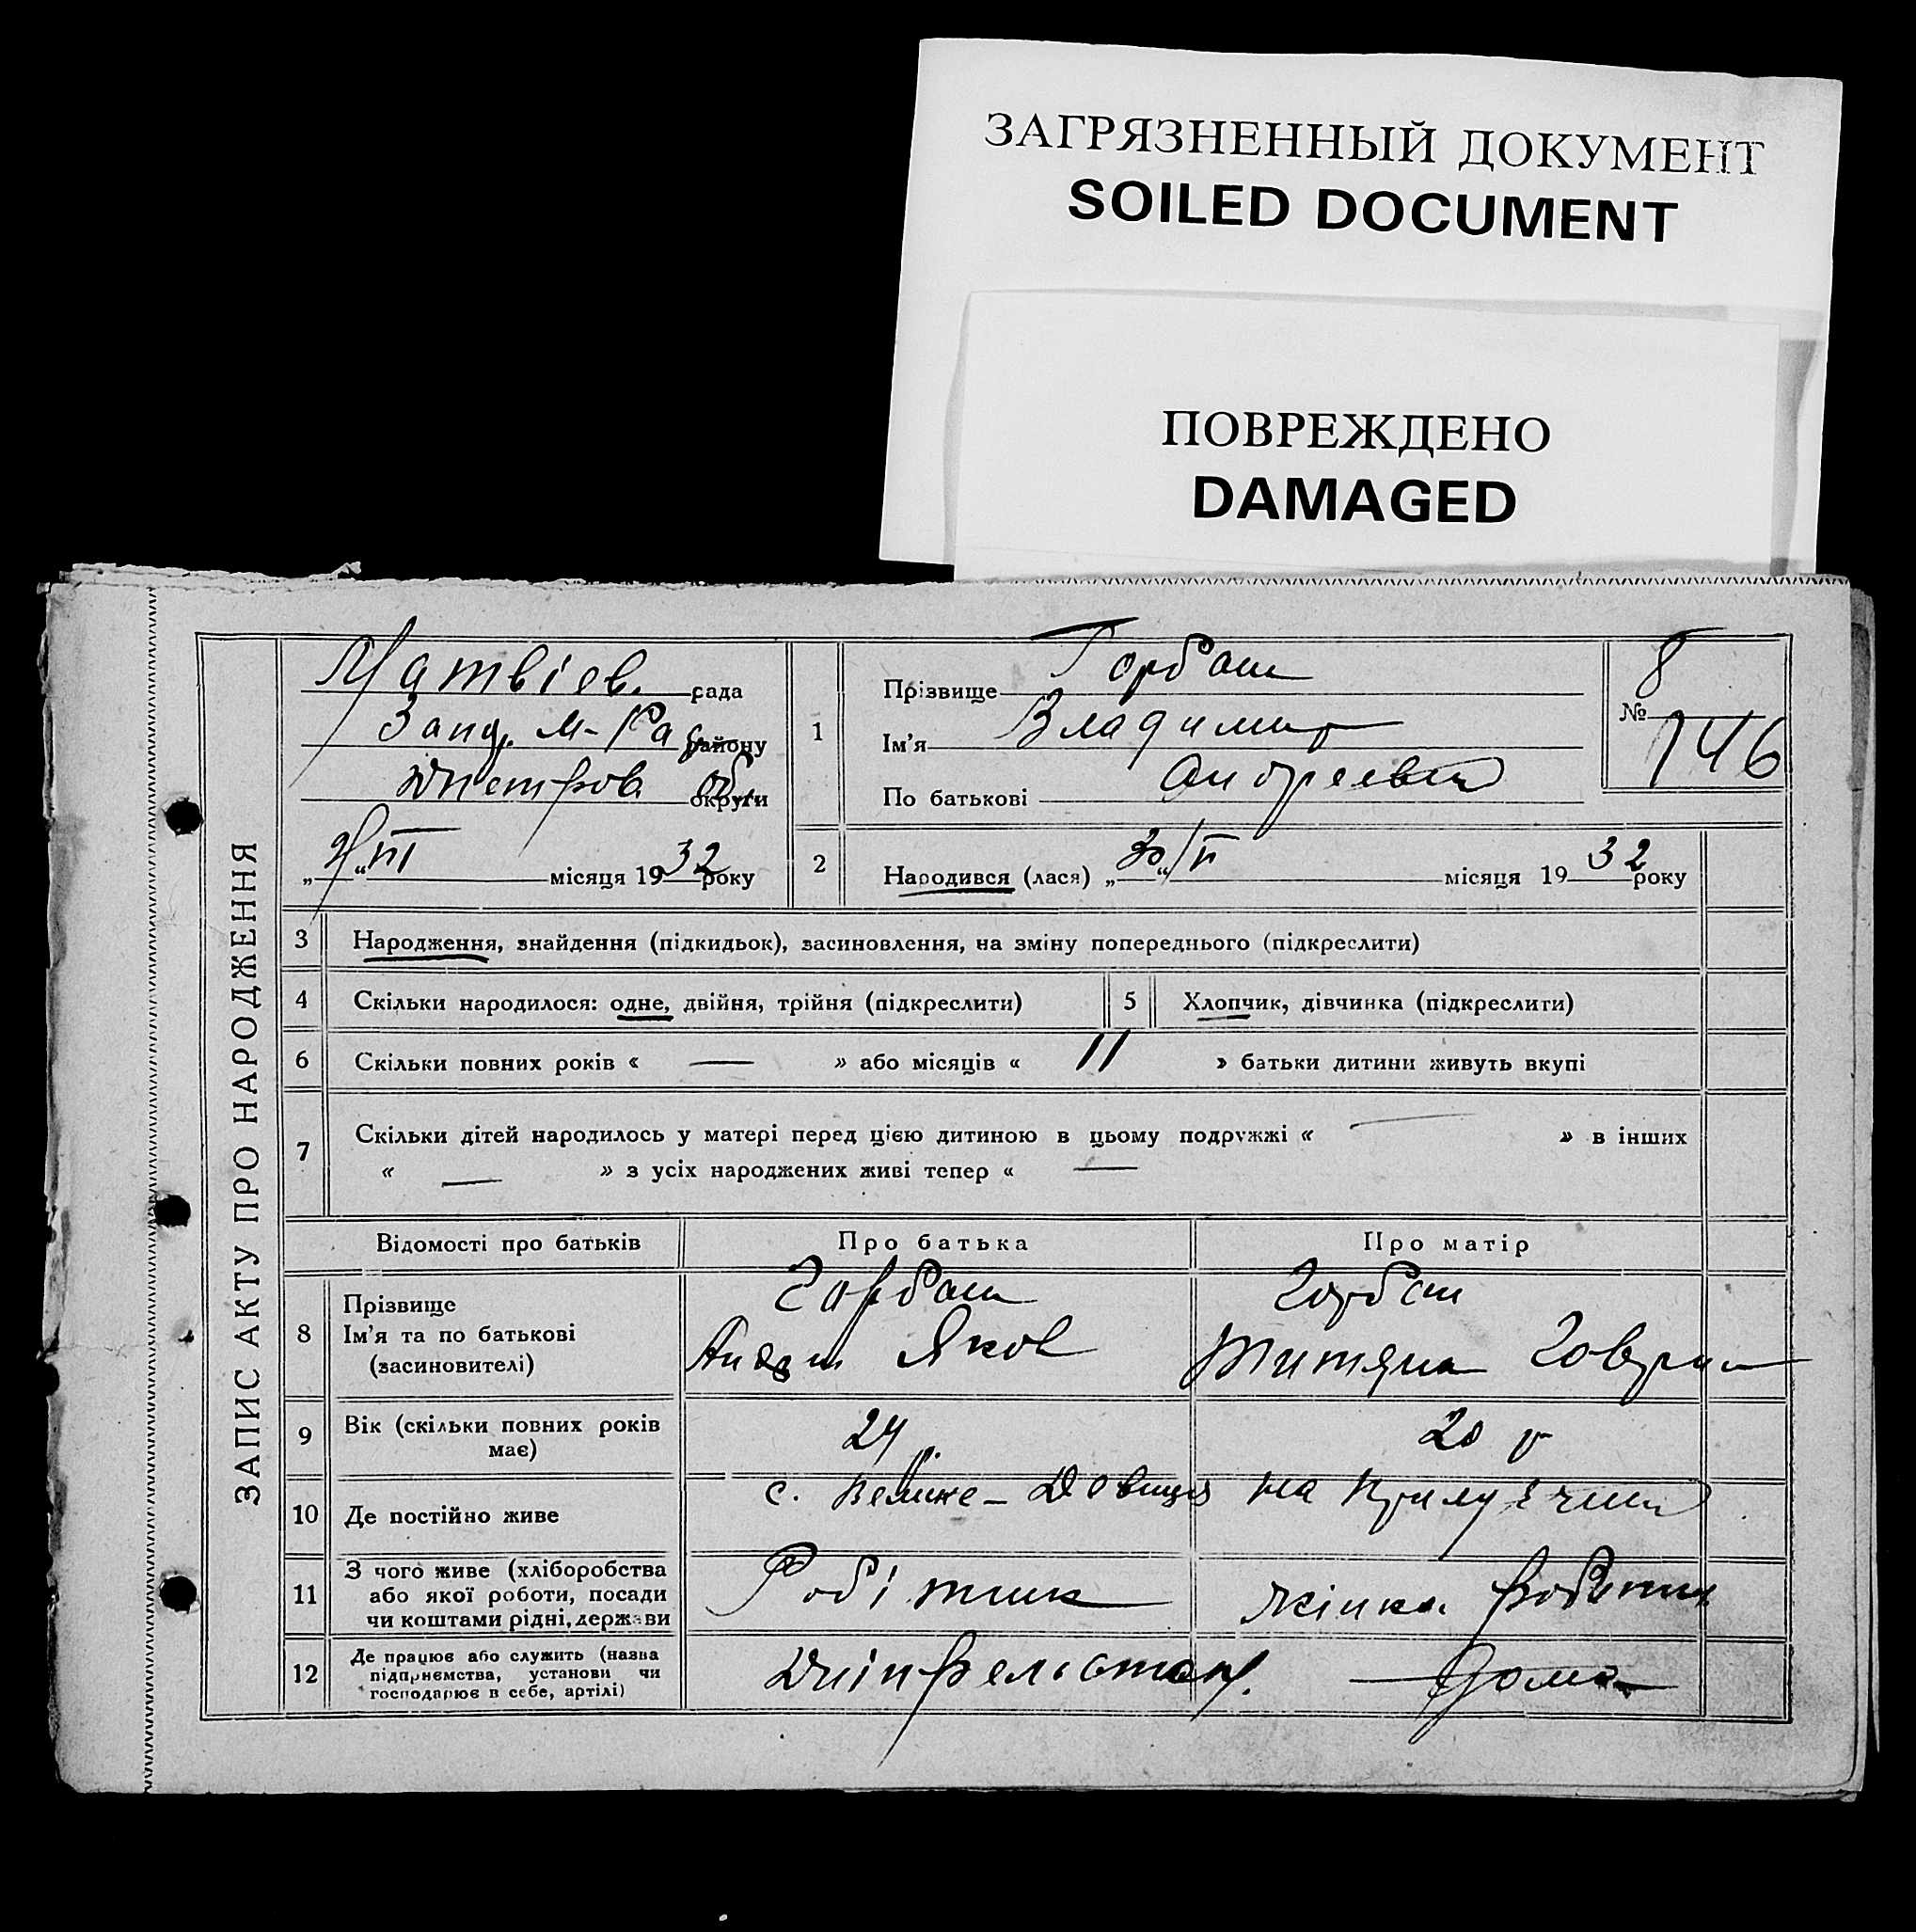 ЗАГРЯЗНЕННЫЙ ДОКУМЕНТ
SOILED DOCUMENT
ПОВРЕЖДЕНО
DAMAGED
ЗАПИС АКТУ ПРО НАРОДЖЕННЯ
Матвіев. рада
району
округи
„ “ місяця 1932 року
1
Прізвище Горбаш
Ім’я Владимир
По батькові Андреевич
8
№
146
2
Народився (лася) „30“/ІІ місяця 1932 року
3 Народження, знайдення (підкидьок), засиновлення, на зміну попереднього (підкреслити)
4 Скільки народилося: одне, двійня, трійня (підкреслити) 5 Хлопчик, дівчинка (підкреслити)
6 Скільки повних років « — » або місяців « 11 » батьки дитини живуть вкупі
7 Скільки дітей народилось у матері перед цією дитиною в цьому подружжі « — » в інших
« — » з усіх народжених живі тепер « —
Відомості про батьків Про батька Про матір
8 Прізвище
Ім’я та по батькові
(засиновителі)
Горбаш
Яков
Горбаш
9 Вік (скільки повних років
має)
24 р.
20 р
10 Де постійно живе
с. Велике-Девиця на
11 З чого живе (хліборобства
або якої роботи, посади
чи коштами рідні, держави
Робітник
жінка
12 Де працює або служить (назва
підприємства, установи чи
господарює в себе, артілі)
Дома